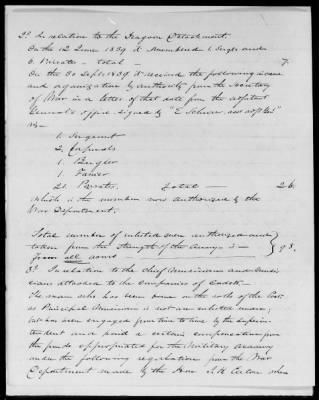 2d In relation to the Dragoon Detachment.
On the 12 June 1839 it numbered 1 Sergt. and
6 Privates - total - 7.
On the 30 Sept 1839 it received the following increase
and organization by authority from the Secretary
of War in a letter of that date from the adjutant
General's office signed by "E Schriver, asst adjt Genl"
viz-
1. Sergeant
2. Corporals
1. Bugler
1. Farrier
21. Privates, Total — 26.
Which is the number now authorized by the
War Department.
Total number of enlisted men authorized and
taken from the strength of the Army is - } 98.
from all corps
3d In relation to the Chief Musicians and Musicians
attached to the companies of Cadets.
The man who has been borne on the rolls of the Post
as Principal Musician is not an enlisted man;
but has been engaged from time to time by the Superin-
tendent and paid a certain compensation from
the funds appropriated for the Military Academy
under the following regulation from the War
Department made by the Hon J. H. Eaton when